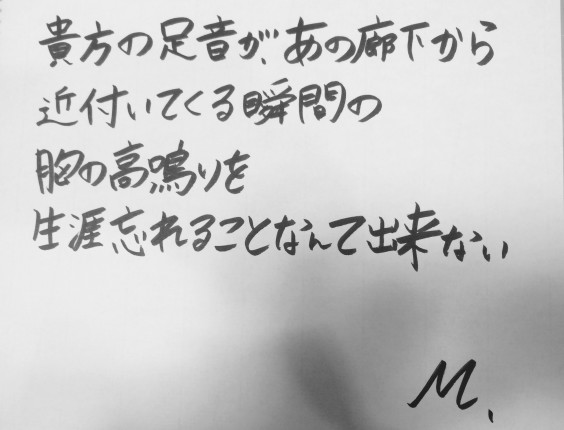 貴方の足音が、あの廊下から
近付いてくる瞬間の
胸の高鳴りを
生涯忘れることなんて出来ない
M.